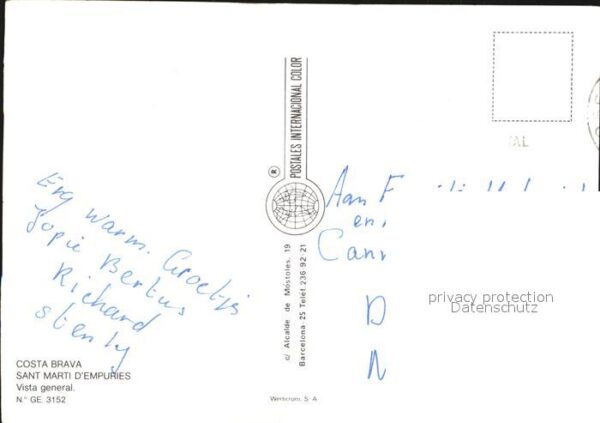 Erg warm. Groetjes
Jopie Bertus
Richard
Stenly
COSTA BRAVA
SANT MARTI D'EMPURIES
Vista general.
N.° GE. 3152
® POSTALES INTERNACIONAL COLOR
c/ Alcalde de Móstoles, 19
Barcelona-25 Telèf. 236 92 21
S. A
Aan F
en
D
N
privacy protection
Datenschutz